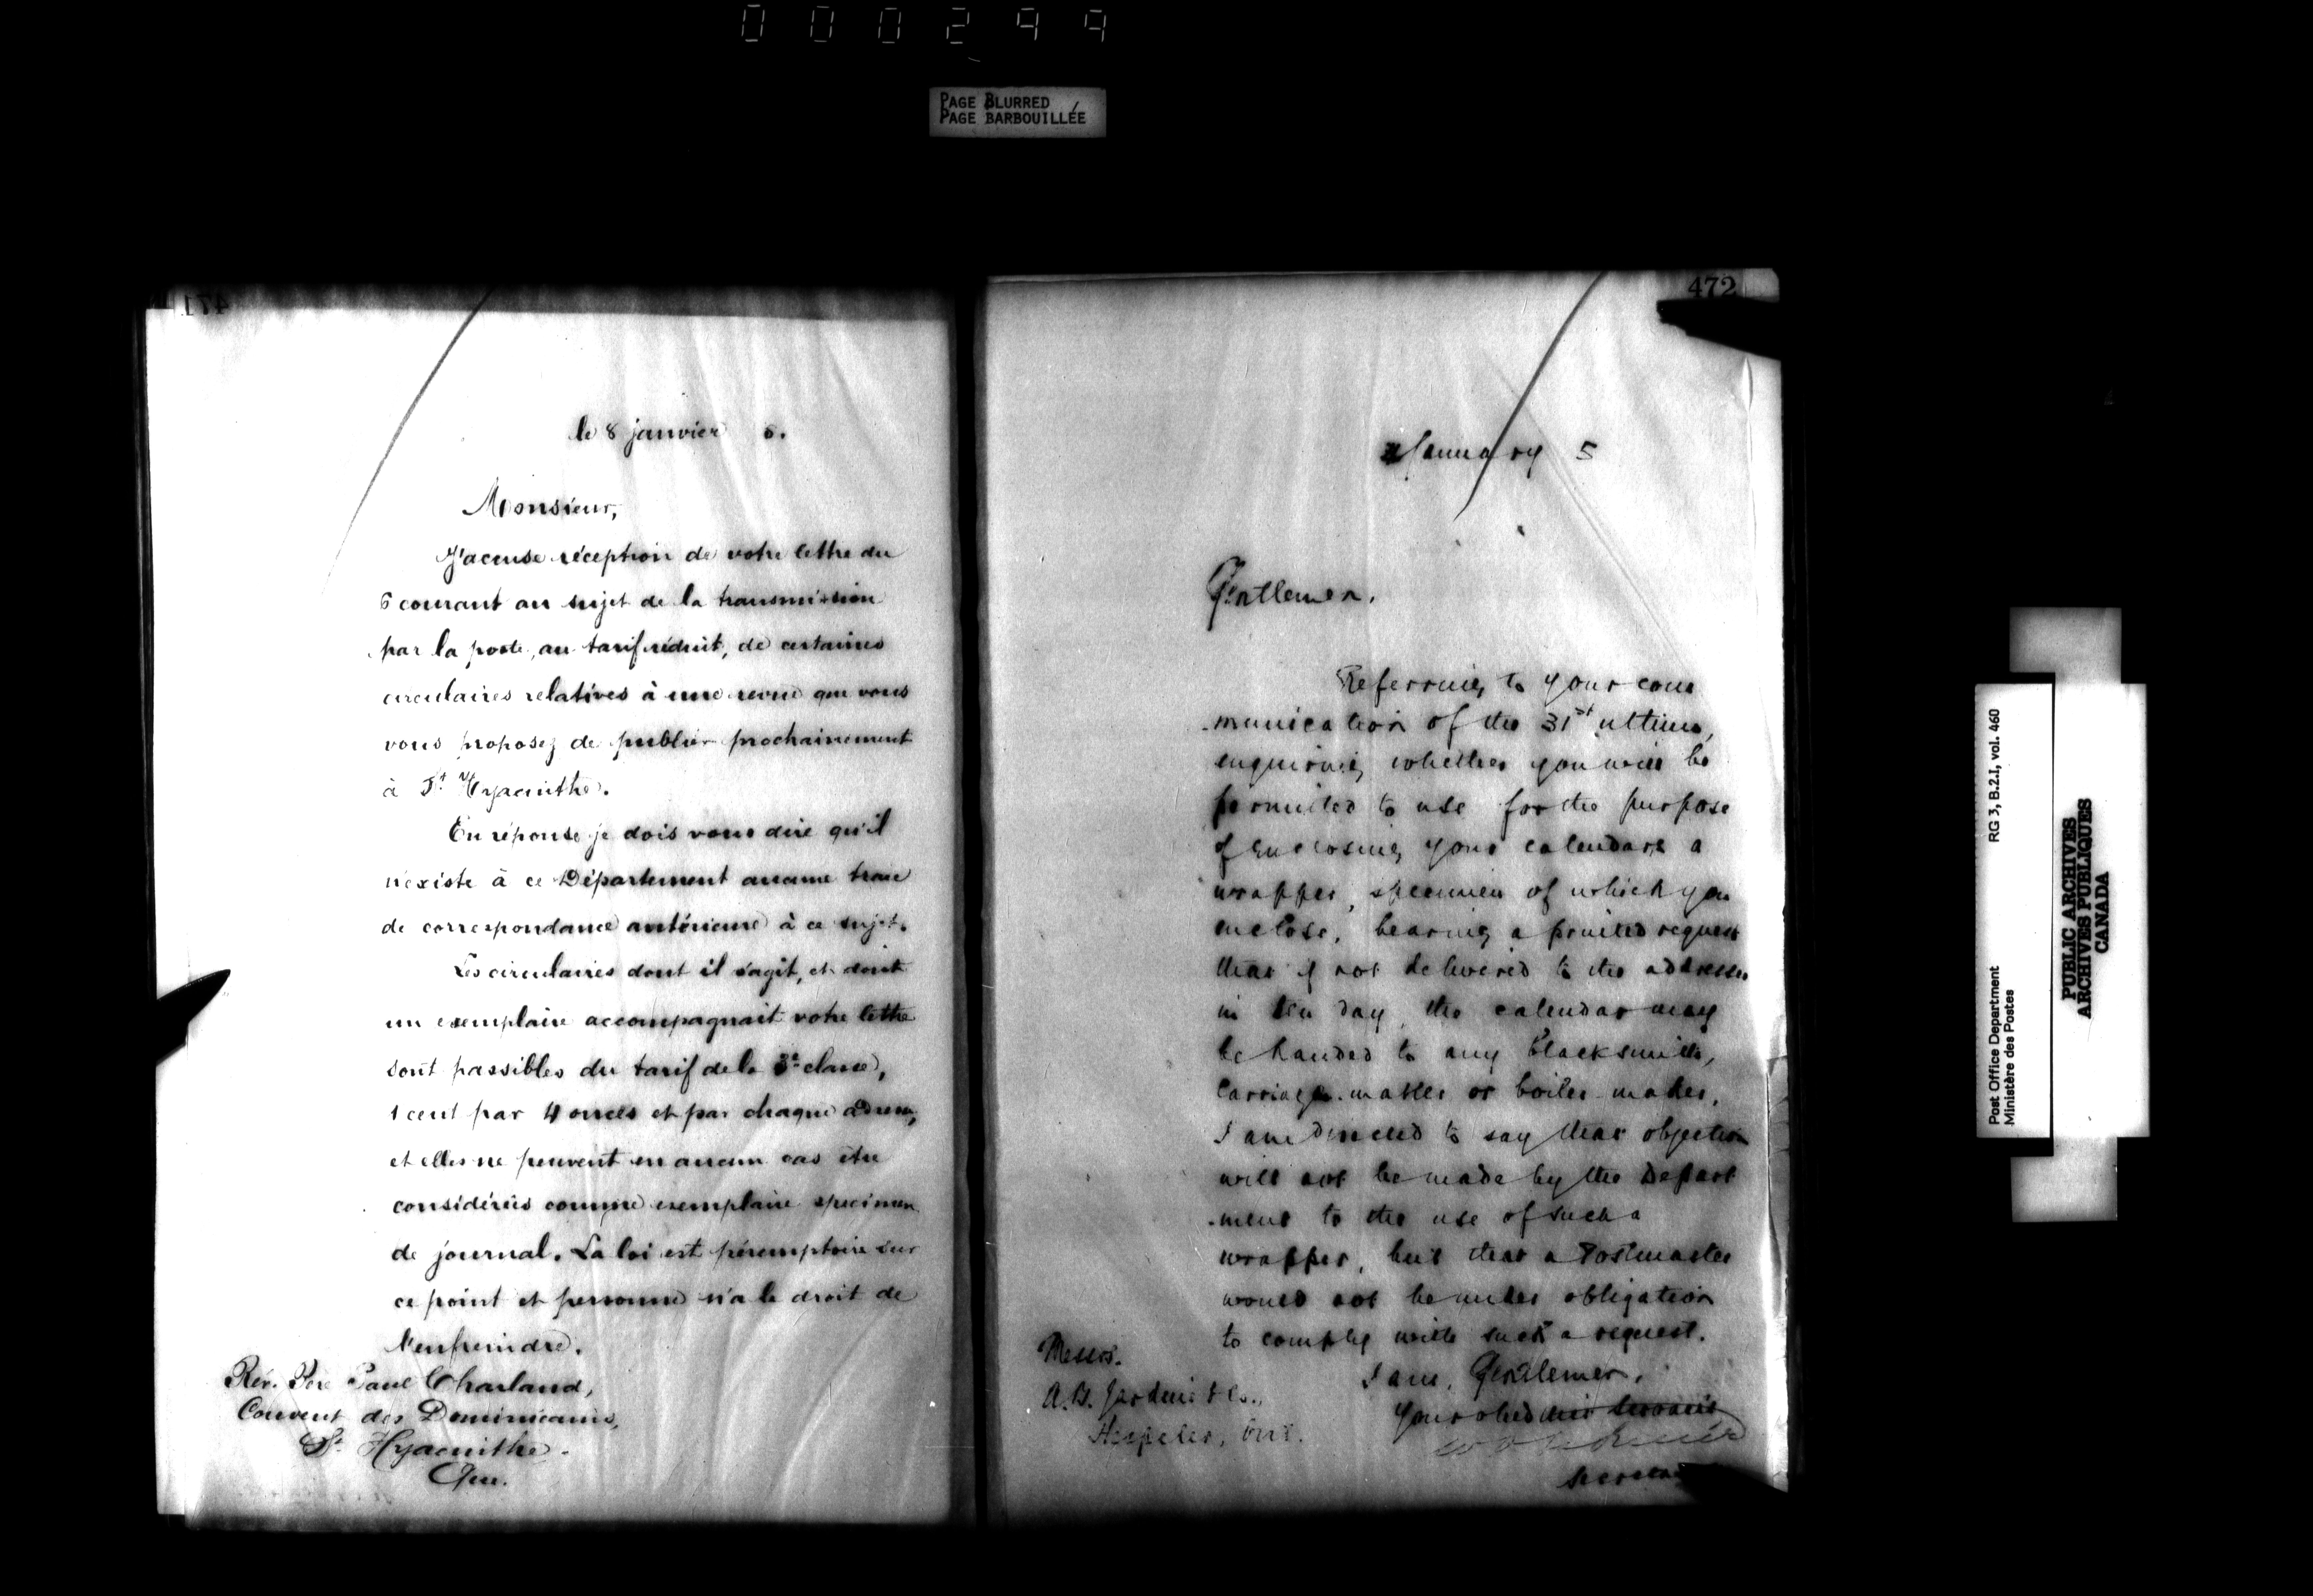 000299
PAGE BLURRED
PAGE BARBOUILLÉE
471
le 8 janvier
Monsieur,
J'accuse réception de votre lettre du
6 courant au sujet de la transmission
par la poste, au tarif réduit, de certaines
circulaires relatives à une revue que vous
vous proposez de publier prochainement
à St. Hyacinthe.
En réponse je dois vous dire qu'il
n'existe à ce Département aucune trace
de correspondance antérieure à ce sujet.
Les circulaires dont il s'agit, et dont
un exemplaire accompagnait votre lettre
sont passibles du tarif de la 3e classe,
1 cent par 4 onces et par chaque adresse,
et elles ne peuvent en aucun cas être
considérées comme exemplaire specimen
de journal. La loi est péremptoire sur
ce point et personne n'a le droit de
l'enfreindre.
Rév. Père Paul Charland,
Couvent des Dominicains,
St. Hyacinthe.
Que.
472
January 5
Gentlemen,
Referring to your com
-munication of the 31st ultimo,
enquiring whether you will be
permitted to use for the purpose
of enclosing your calendars a
wrapper, specimen of which you
enclose, bearing a printed request
that if not delivered to the addressee
in ten day, the calendar may
be handed to any blacksmith,
carriage-maker or boiler-maker,
I am directed to say that objection
will not be made by the Depart
-ment to the use of such a
wrapper, but that a Postmaster
would not be under obligation
to comply with such a request.
I am, Gentlemen,
Your obedient servant
Secretary
Messrs.
A.B. Jardine & Co.,
Hespeler, Ont.
Post Office Department RG 3, B.2.I, vol. 460
Ministère des Postes
PUBLIC ARCHIVES
ARCHIVES PUBLIQUES
CANADA